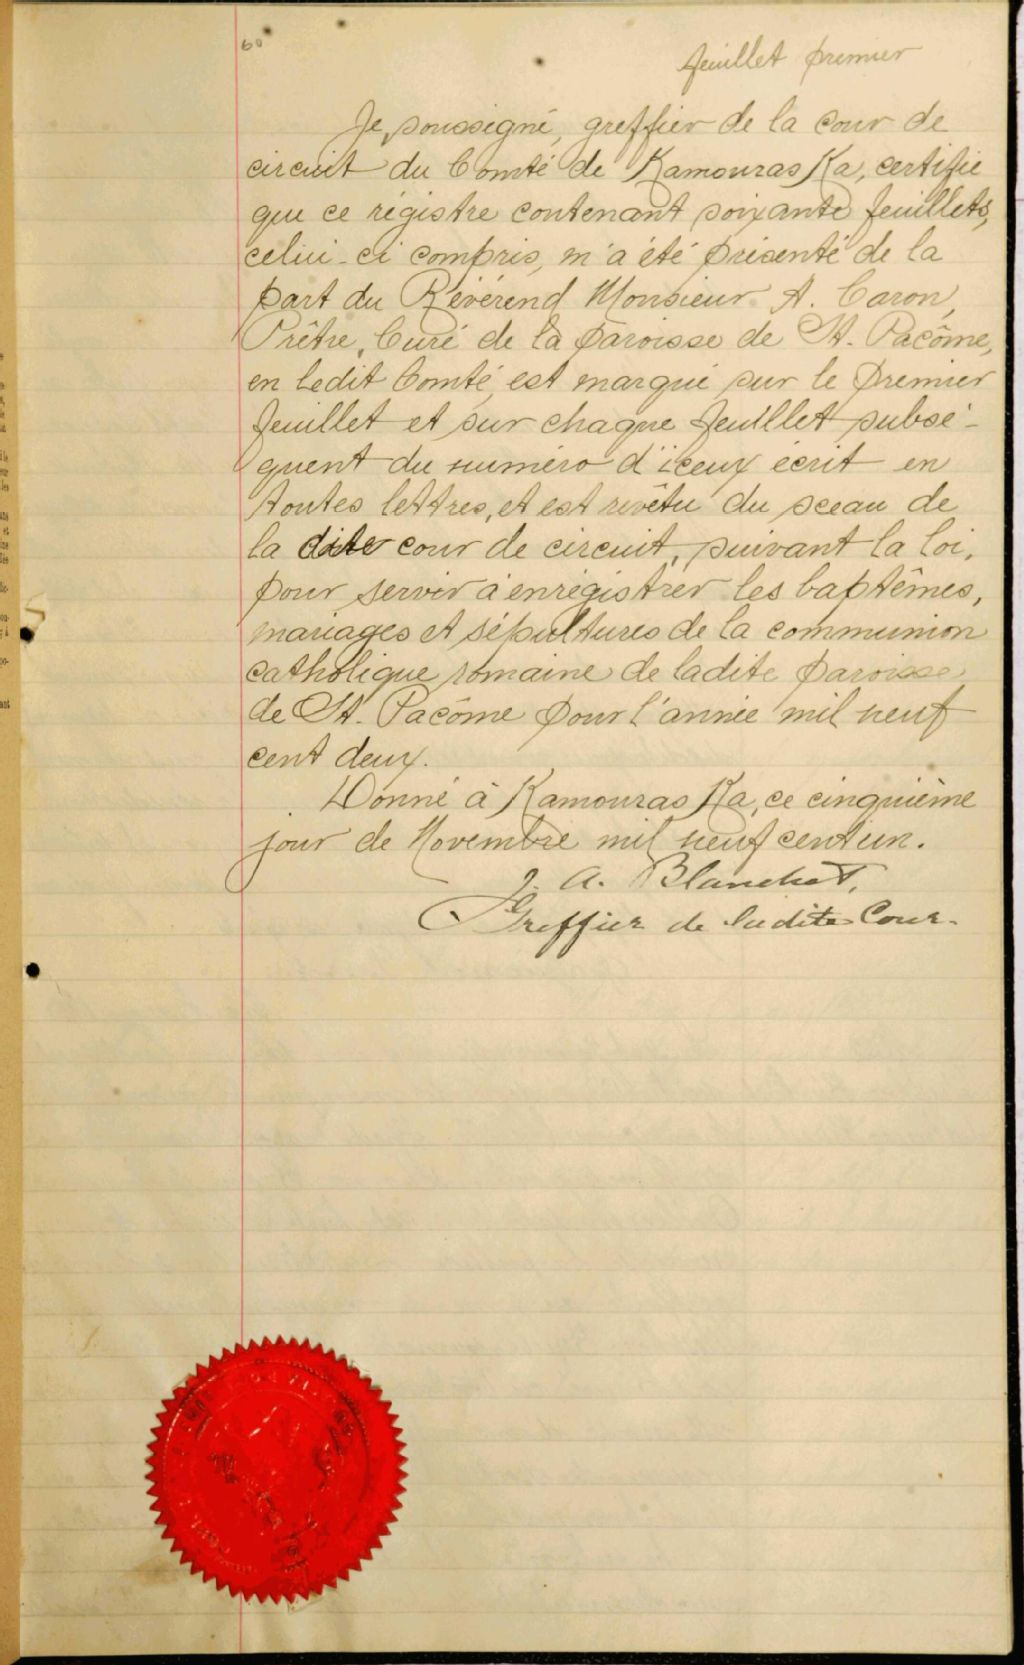 60
feuillet premier
Je, soussigné, greffier de la cour de
circuit du Comté de Kamouraska, certifie
que ce régistre contenant soixante feuillets,
celui-ci compris, m'a été présenté de la
part du Révérend Monsieur A. Caron,
Prêtre, Curé de la paroisse de St. Pacôme,
en ledit Comté, est marqué sur le premier
feuillet et sur chaque feuillet subsé-
quent du numéro d'iceux écrit en
toutes lettres, et est revêtu du sceau de
la dite cour de circuit, suivant la loi,
pour servir à enrégistrer les baptêmes,
mariages et sépultures de la communion
catholique romaine de ladite paroisse
de St. Pacôme pour l'année mil neuf
cent deux.
Donné à Kamouraska, ce cinquième
jour de Novembre mil neuf cent un.
J. A. Blanchet,
Greffier de ladite Cour.